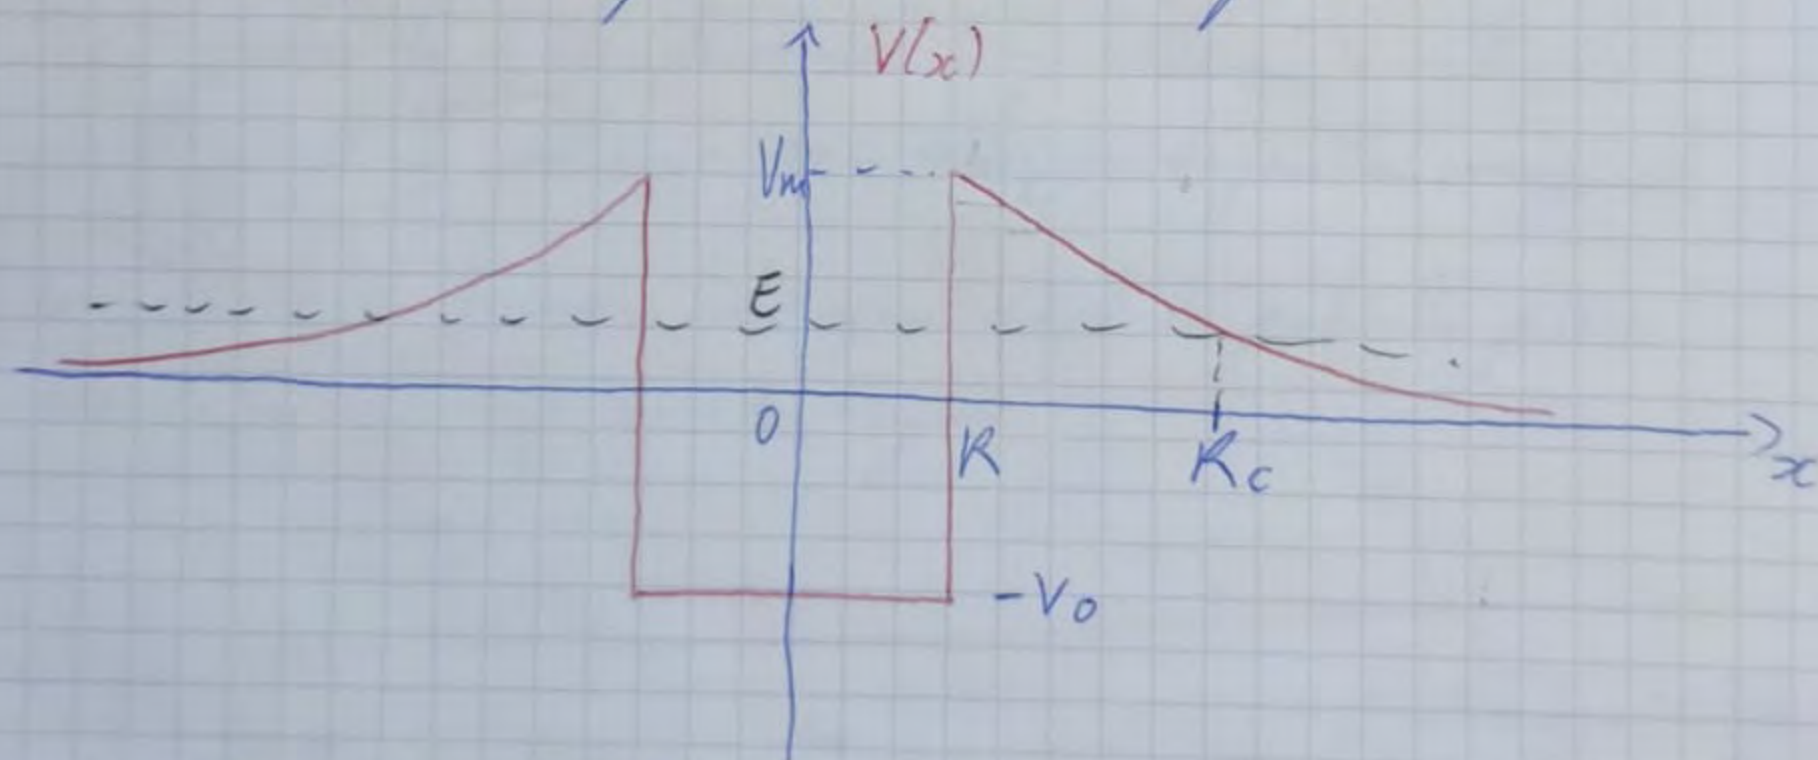 V(x)
Vm
E
0
R
Rc
x
-V0